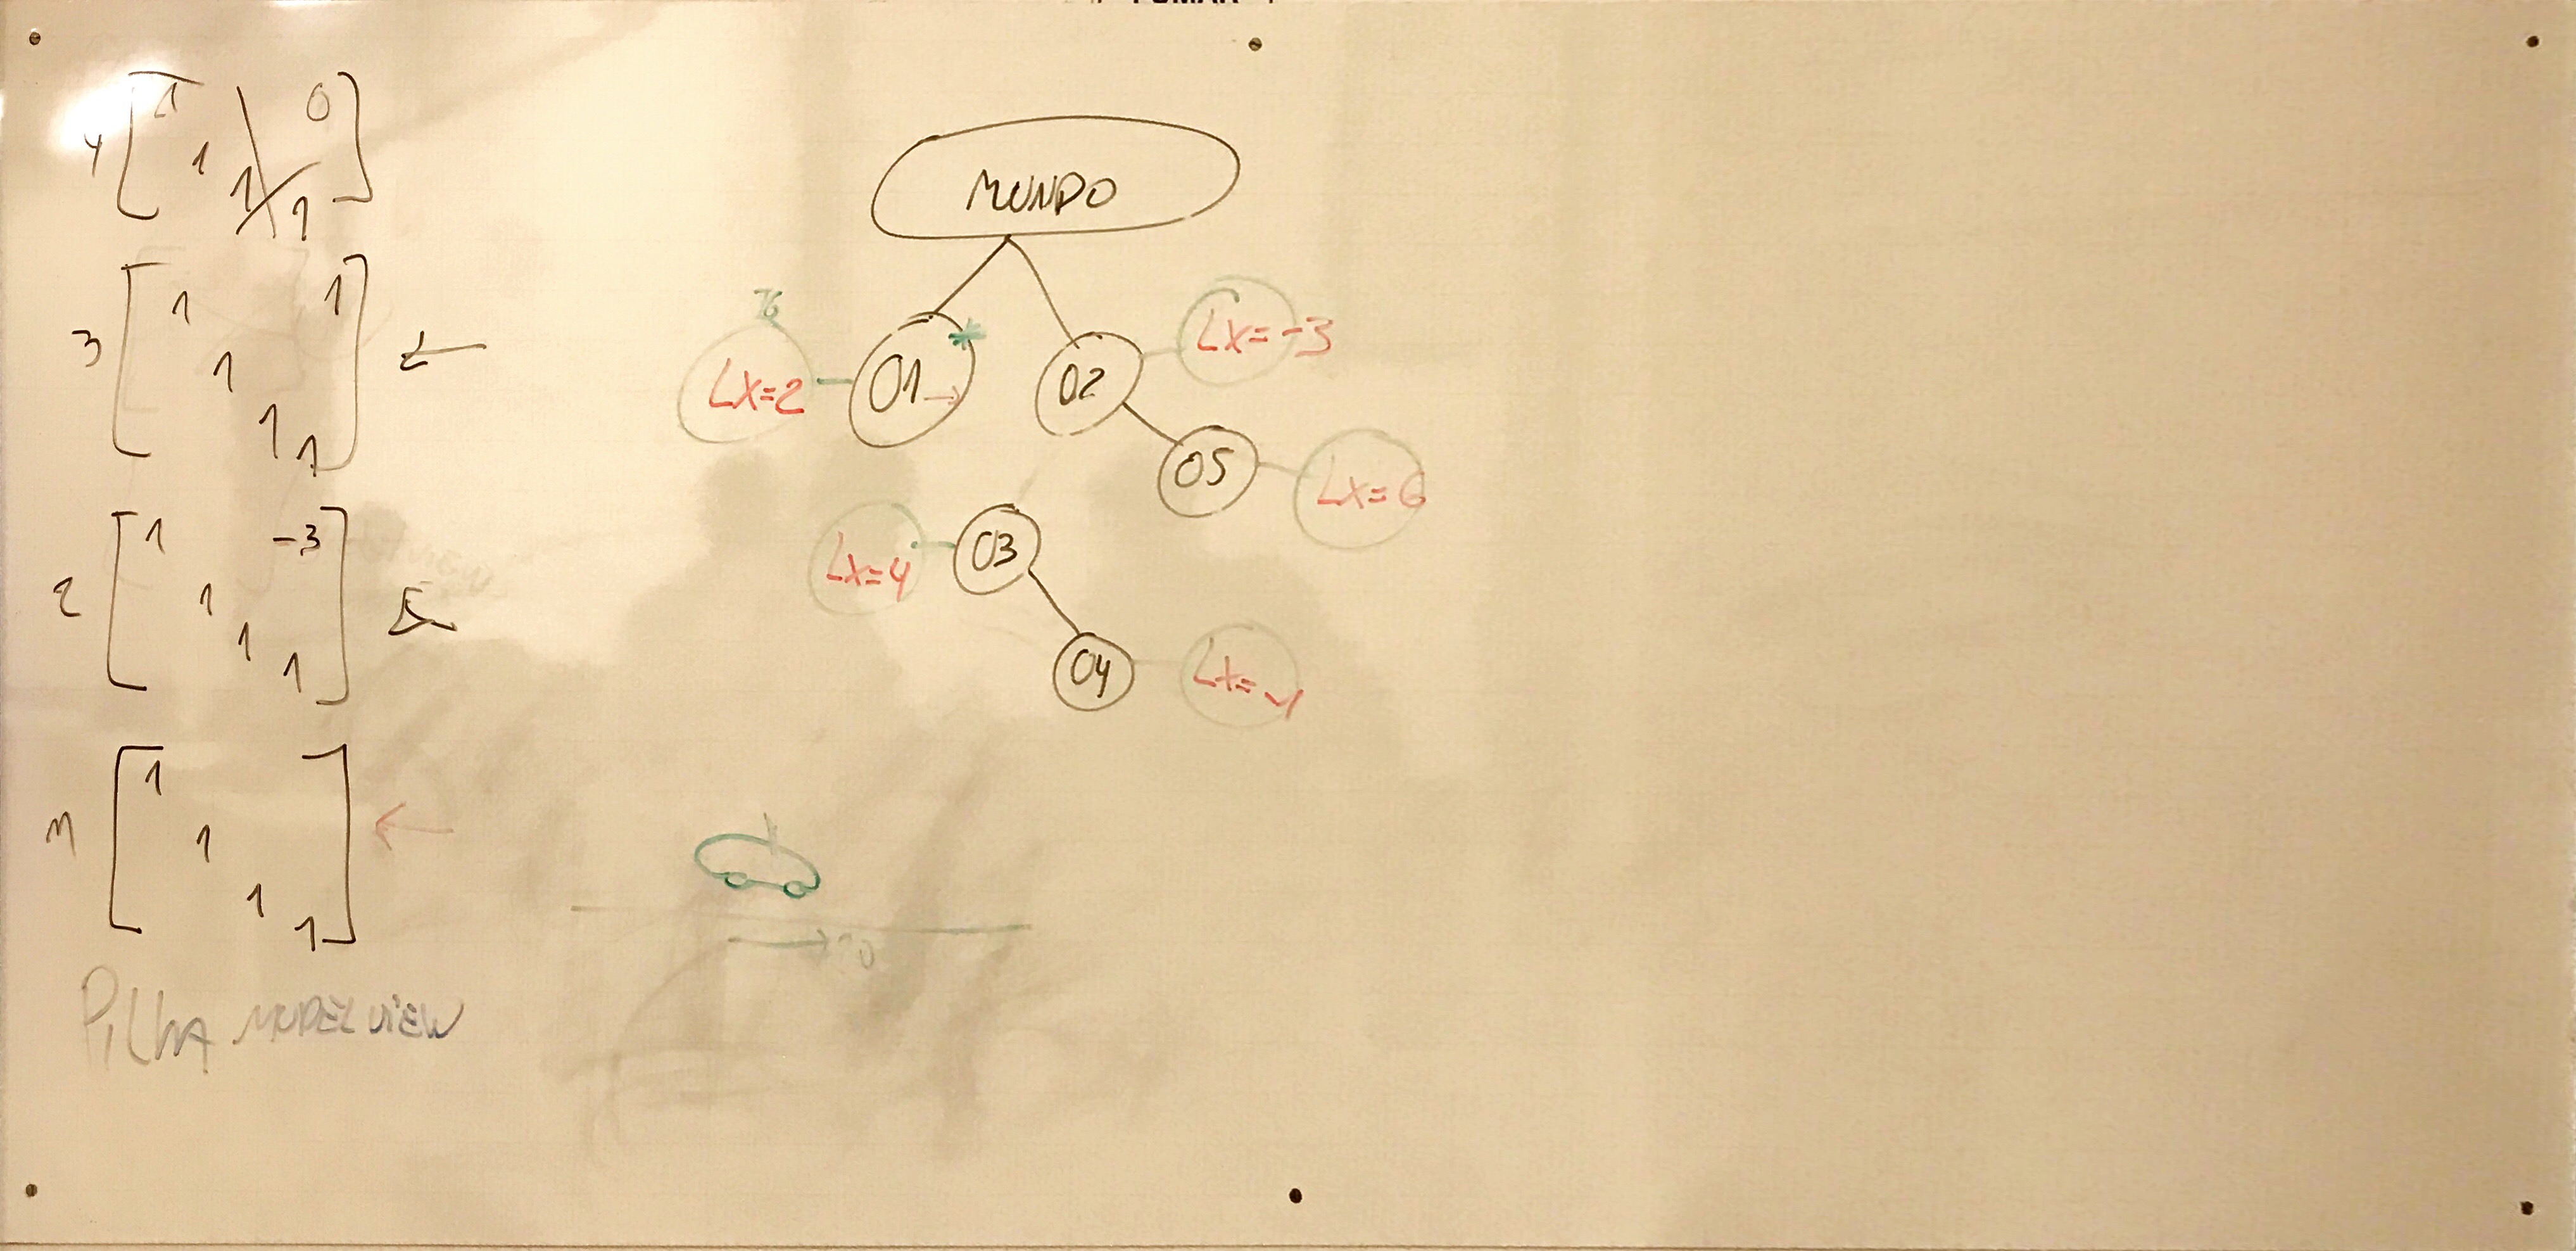 4 [ 1 0
1
1
1 ]
3 [ 1 1
1
1
1 ] ←
2 [ 1 -3
1
1
1 ]
1 [ 1
1
1
1 ] ←
PILHA MODELVIEW
MUNDO
TG
LX=2
O1 →
*
O2
LX=-3
O5
LX=6
LX=4
O3
O4
LX=-1